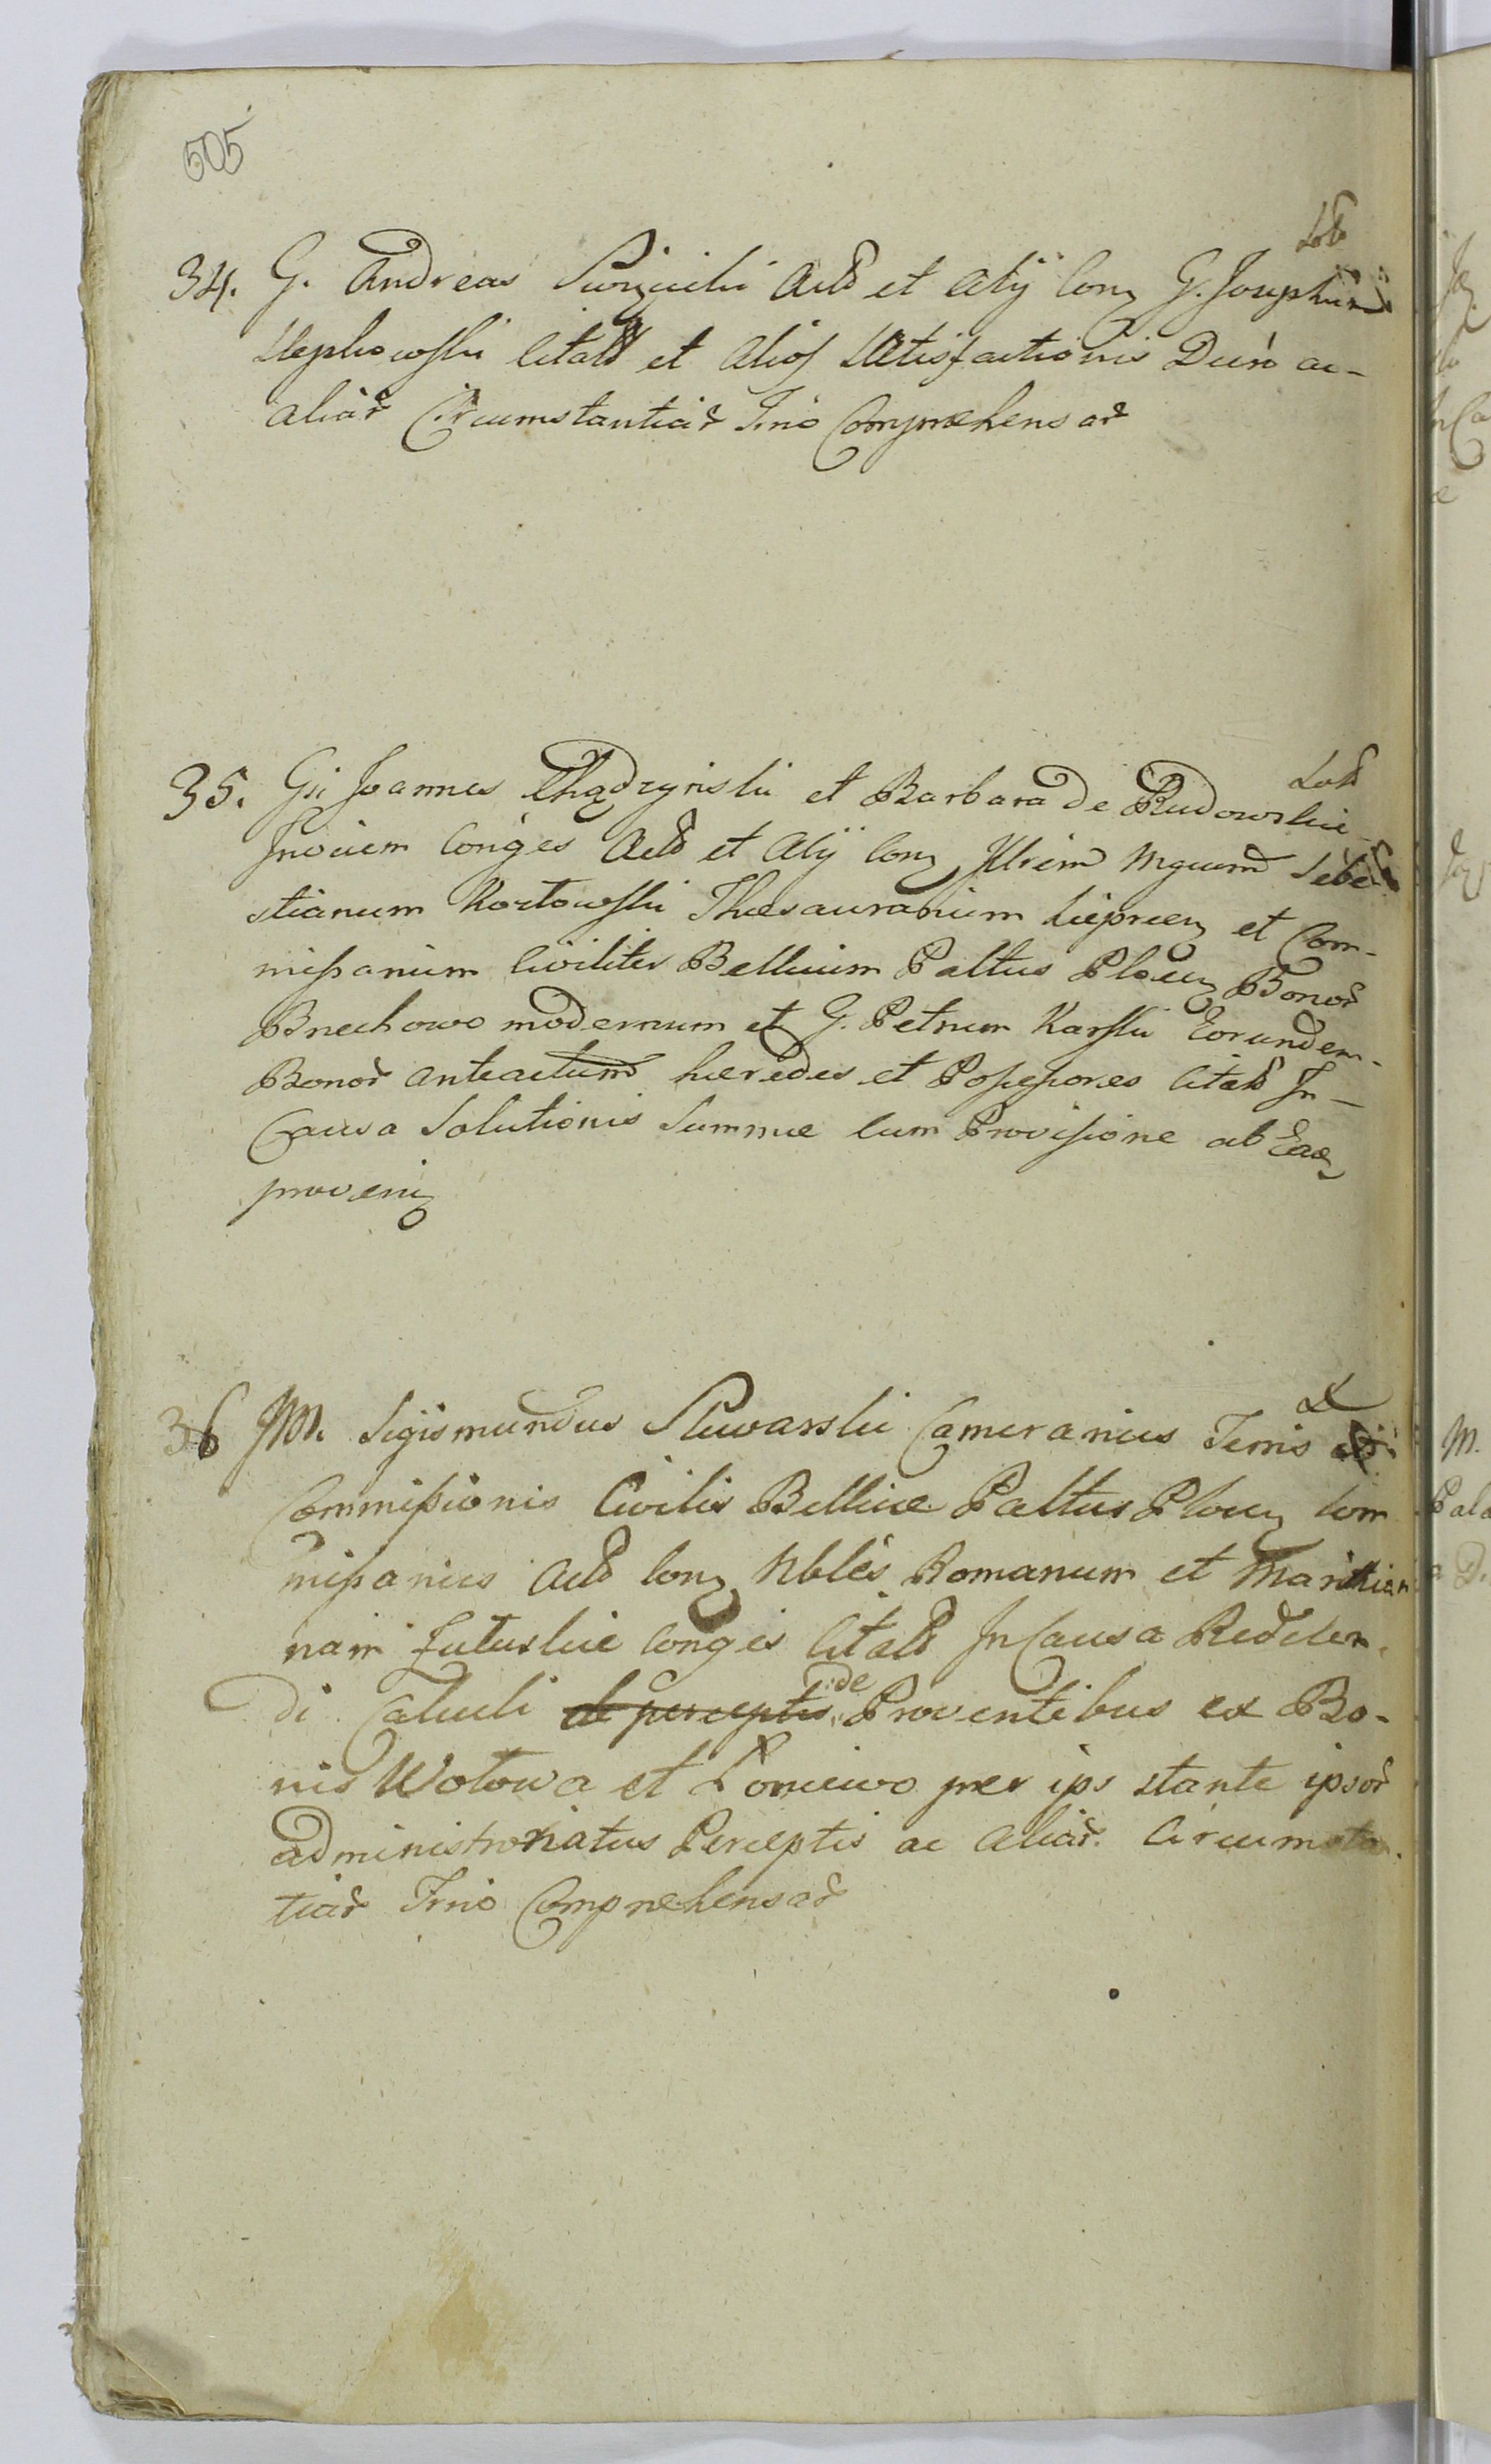 505
34. G. Andreas Actd et Alij Conz G. Josephum
Citatd et Alios Satisfactionis Damn ac-
aliar Circumstantiar Trio Comprehensar
35. Gsi Joannes Chądzyński et Barbara de Rudowskie
Invicem Conges Actd et Alij Conz Illrem Mgcum Seba-
stianum Kortowski Thesaurarium Lieprcen et Com-
missarium Civiliter Bellicum Paltus Plocen Bonor
Bnechowo modernum et G. Petrum Karski Eorundem-
Bonor anteactum hæredes et Possessores Citatd In-
Causa Solutionis Summæ Cum Provisione ab Eade
proveniz
36 JM. Sigismundus Skwarski Camerarius Terris
Commissionis Civilis Bellicæ Paltus Plocen Com
missarius Actd Conz Nbles Romanum et Marian
nam Conges Citatd In Causa Redden-
di Calculi de perceptis de Proventibus ex Bo-
nis Wotowa et per ips stante ipsor
administroriatus Perceptis ac Aliar. Circumstan-
tiar Trio Comprehensar